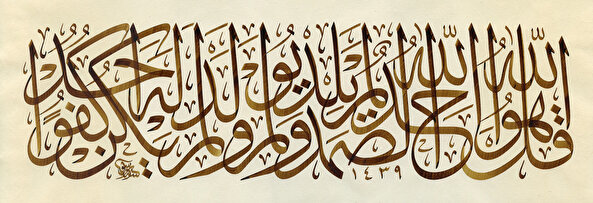 قل هو الله احد الله الصمد لم يلد ولم يولد ولم يكن له كفوا احد
١٤٣٩